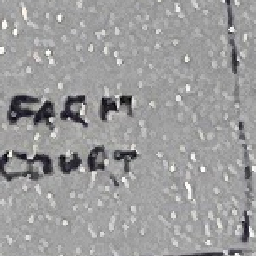 FARM
COURT